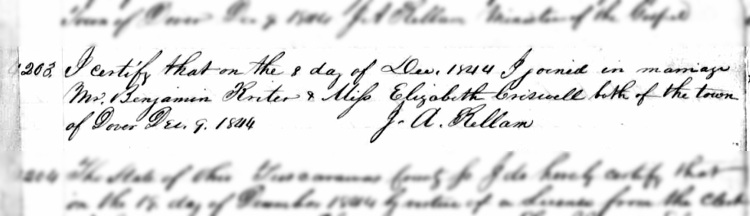 Town of Dover Dec 9 1844 J A Kellam Minister of the Gospel
1203. I certify that on the 8 day of Dec. 1844 I joined in marriage
Mr. Benjamin Kniter & Miss Elizabeth Criswell both of the town
of Dover Dec. 9. 1844 J. A. Kellam
1204 The State of Ohio Tuscarawas County Ss I do hereby certify that
on the 18 day of December 1844 by virtue of a License from the Clerk